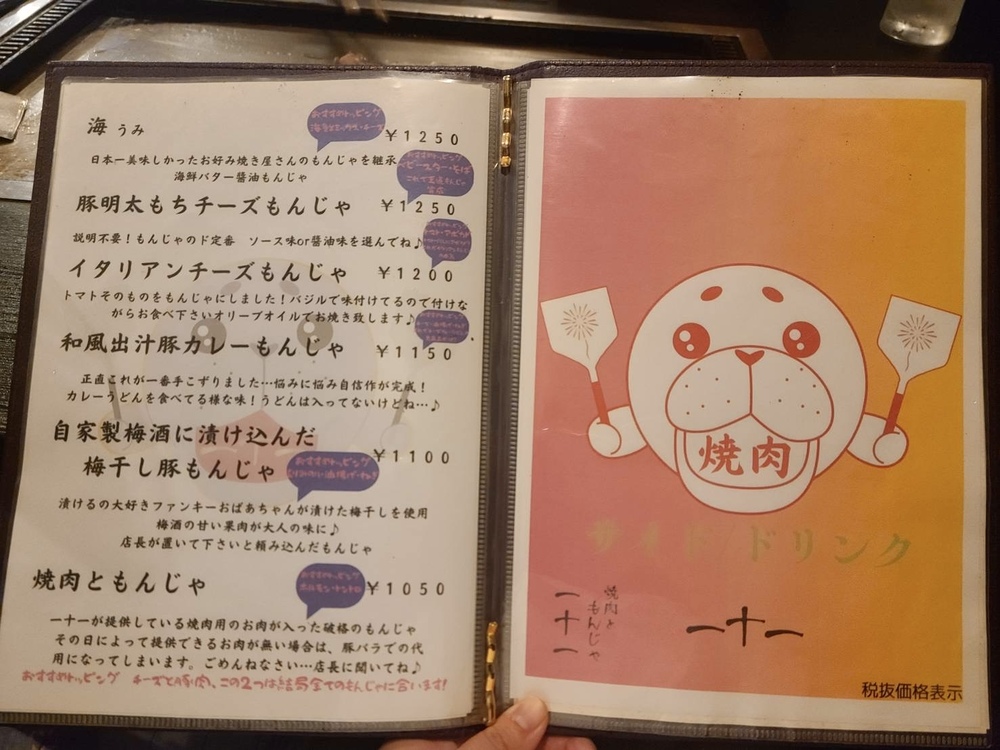 海 うみ
おすすめトッピング
¥1250
日本一美味しかったお好み焼き屋さんのもんじゃを継承
海鮮バター醤油もんじゃ
おすすめトッピング
ベビースター・そば
豚明太もちチーズもんじゃ ¥1250
説明不要！もんじゃのド定番 ソース味or醤油味を選んでね♪
イタリアンチーズもんじゃ ¥1200
トマトそのものをもんじゃにしました！バジルで味付けてるので付けな
がらお食べ下さいオリーブオイルでお焼き致します♪
和風出汁豚カレーもんじゃ ¥1150
正直これが一番手こずりました…悩みに悩み自信作が完成！
カレーうどんを食べてる様な味！うどんは入ってないけどね…♪
自家製梅酒に漬け込んだ
梅干し豚もんじゃ ¥1100
おすすめトッピング
漬けるの大好きファンキーおばあちゃんが漬けた梅干しを使用
梅酒の甘い果肉が大人の味に♪
店長が置いて下さいと頼み込んだもんじゃ
焼肉ともんじゃ ¥1050
おすすめトッピング
一十一が提供している焼肉用のお肉が入った破格のもんじゃ
その日によって提供できるお肉が無い場合は、豚バラでの代
用になってしまいます。ごめんねなさい…店長に聞いてね♪
おすすめトッピング チーズと豚肉、この2つは結局全てのもんじゃに合います!
焼肉
サイド ドリンク
焼肉と
もんじゃ
一十一
一十一
税抜価格表示